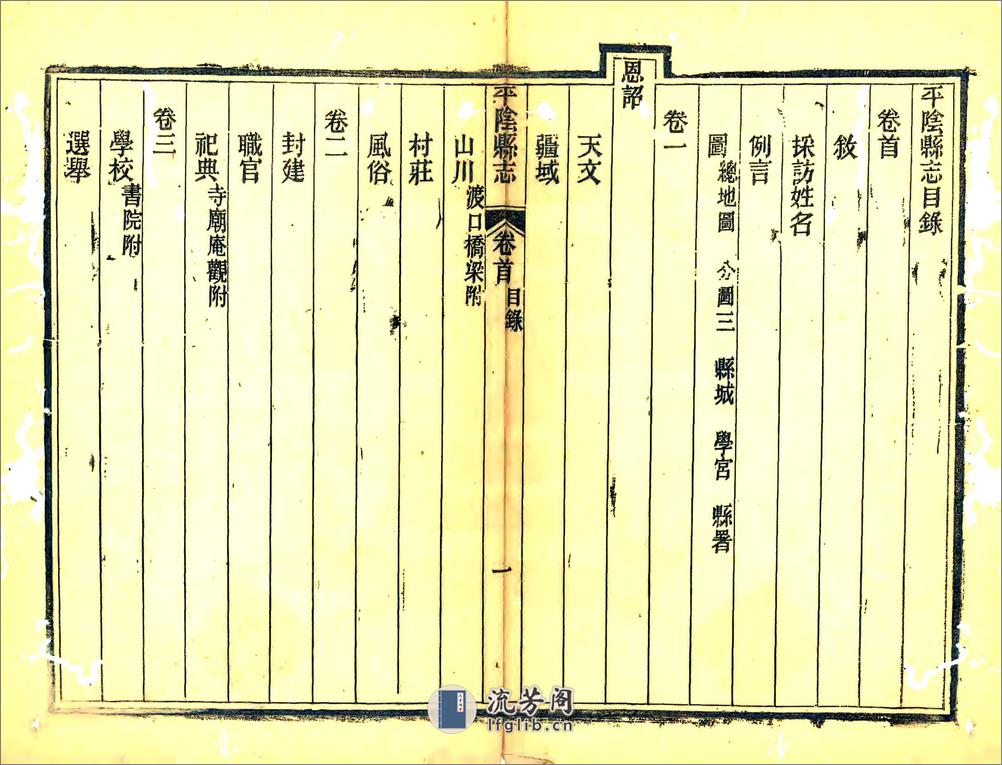 平陰縣志目錄
卷首
敘
採訪姓名
例言
圖 總地圖 分圖三 縣城 學宮 縣署
卷一
恩詔
天文
疆域
平陰縣志 卷首 目錄 一
山川 渡口橋梁附
村莊
風俗
卷二
封建
職官
祀典 寺廟庵觀附
卷三
學校 書院附
選舉
流芳阁
lfglib.cn